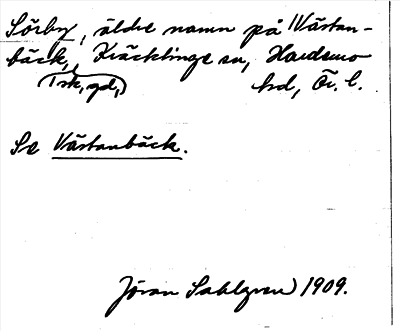 Sörby, äldre namn på Västan-
bäck, Kräcklinge sn, Hardemo
1 sk, gd, hd, Ör. l.
Se Västanbäck.
Jöran Sahlgren 1909.